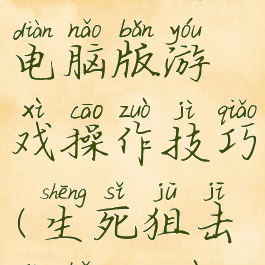 diàn nǎo bǎn yóu
电脑版游
xì cāo zuò jì qiǎo
戏操作技巧
shēng sǐ jū jī
(生死狙击